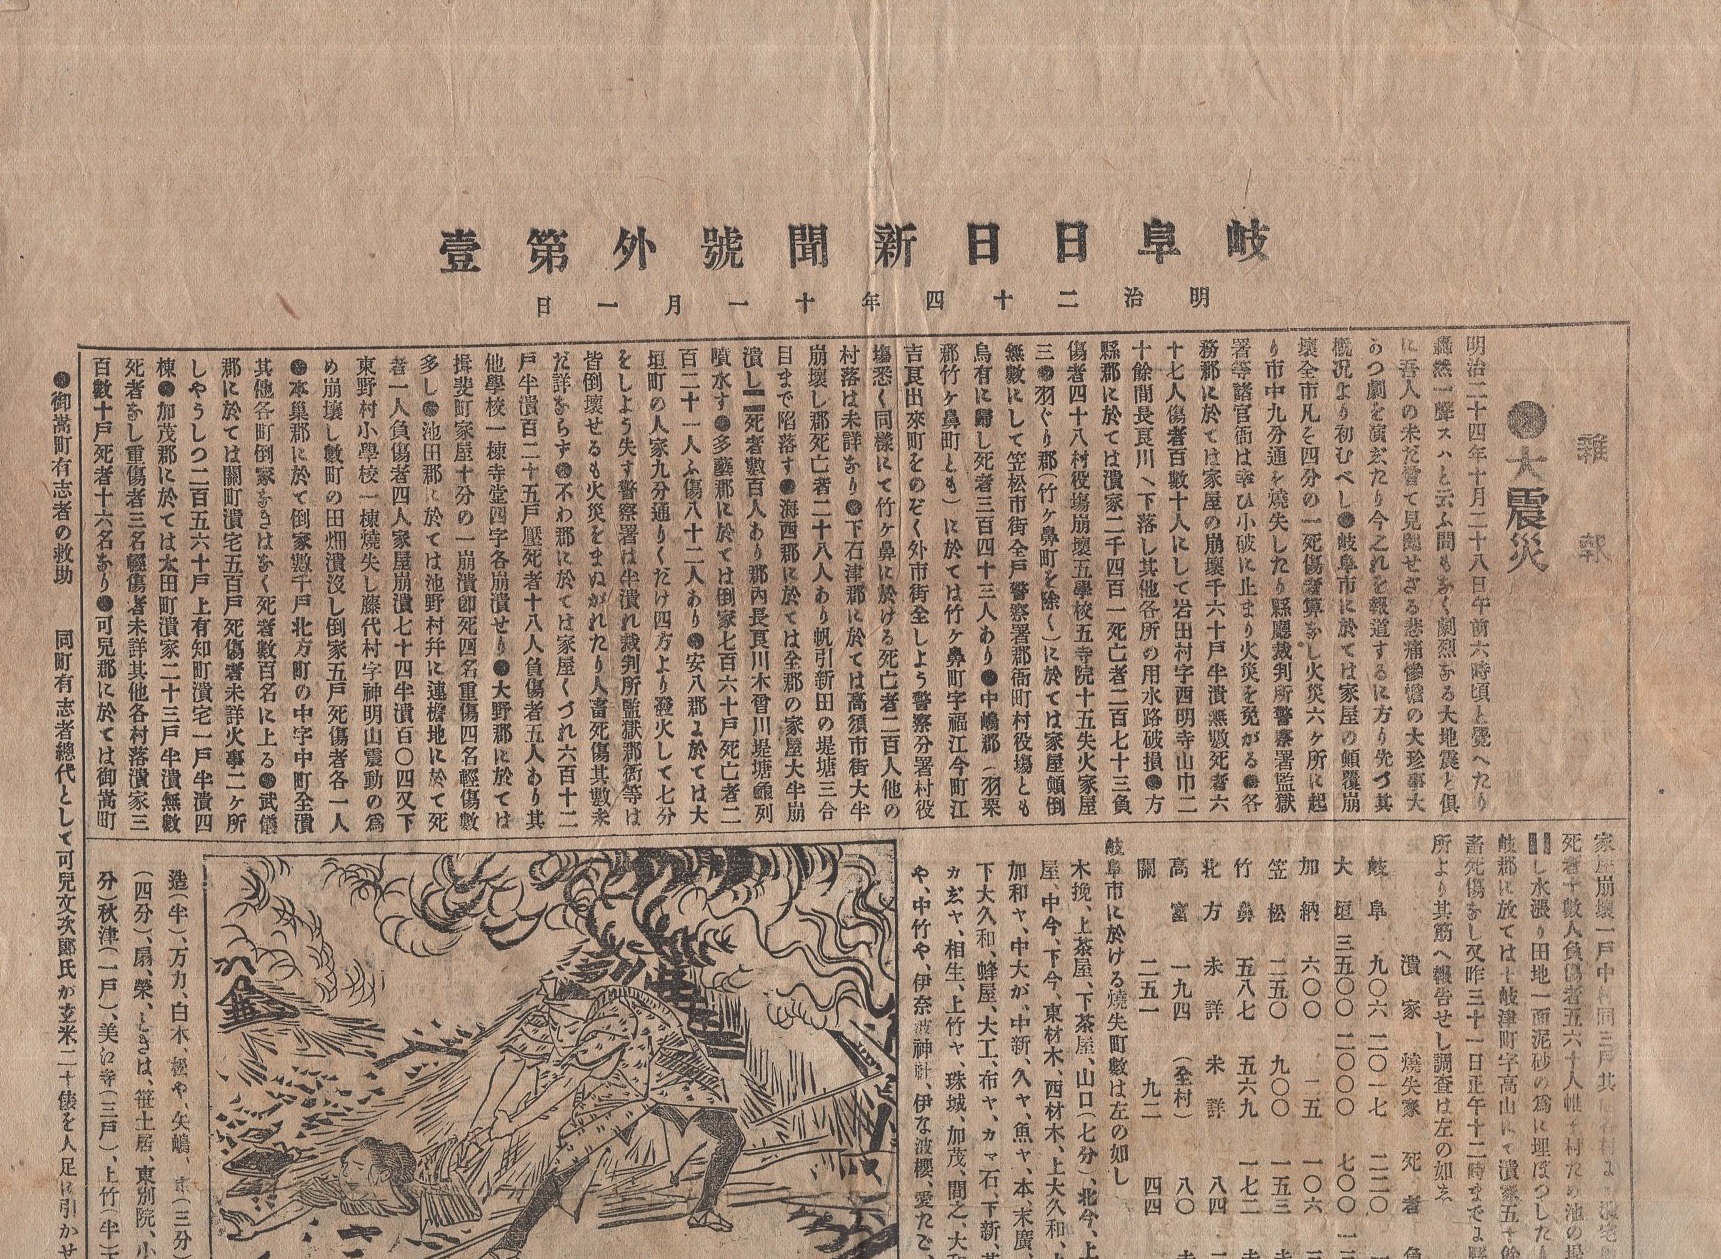 岐阜日日新聞號外第壹
明治二十四年十一月一日
雜報
●大震災
明治二十四年十月二十八日午前六時頃と覺へたり
轟然一聲スハと云ふ間もなく劇烈なる大地震と俱
に吾人の未だ曾て見聞せざる悲痛慘憺の大珍事大
うつ劇を演玄たり今之れを報道するに方り先づ其
概況より初むべし●岐阜市に於ては家屋の顚覆崩
壞全市凡そ四分の一死傷者算なし火災六ヶ所に起
り市中九分通を燒失したり縣廳裁判所警察署監獄
署等諸官衙は幸ひ小破に止まり火災を免がる●各
務郡に於ては家屋の崩壞千六十戸半潰無數死者六
十七人傷者百數十人にして岩田村字西明寺山巾二
十餘間長良川へ下落し其他各所の用水路破損●方
縣郡に於ては潰家二千四百一死亡者二百七十三負
傷者四十八村役塲崩壞五學校五寺院十五失火家屋
三●羽ぐり郡(竹ヶ鼻町を除く)に於ては家屋顚倒
無數にして笠松市街全戸警察署郡衙町村役塲とも
烏有に歸し死者三百四十三人あり●中嶋郡(羽栗
郡竹ヶ鼻町とも)に於ては竹ヶ鼻町字福江今町江
吉良出來町をのぞく外市街全しよう警察分署村役
塲悉く同樣にて竹ヶ鼻に於ける死亡者二百人他の
村落は未詳なり●下石津郡に於ては高須市街大半
崩壞し郡死亡者二十八人あり帆引新田の堤塘三合
目まで陷落す●海西郡に於ては全郡の家屋大半崩
潰し死者數百人あり郡內長良川木曾川堤塘顚列
噴水す●多藝郡に於ては倒家七百六十戸死亡者二
百二十一人ふ傷八十二人あり●安八郡よ於ては大
垣町の人家九分通りくだけ四方より發火して七分
をしよう失す警察署は半潰れ裁判所監獄郡衙等は
皆倒壞せるも火災をまぬがれたり人畜死傷其數未
だ詳ならず●不わ郡に於ては家屋くづれ六百十二
戸半潰百二十五戸壓死者十八人負傷者五人あり其
他學校一棟寺堂四字各崩潰せり●大野郡に於ては
揖斐町家屋十分の一崩潰卽死四名重傷四名輕傷數
多し●池田郡に於ては池野村幷に連檐地に於て死
者一人負傷者四人家屋崩潰七十四半潰百〇四又下
東野村小學校一棟燒失し藤代村字神明山震動の爲
め崩壞し數町の田畑潰沒し倒家五戸死傷者各一人
●本巢郡に於て倒家數千戸北方町の中字中町全潰
其他各町倒家なきはなく死者數百名に上る●武儀
郡に於ては關町潰宅五百戸死傷者未詳火事二ヶ所
しやうしつ二百五六十戸上有知町潰宅一戸半潰四
棟●加茂郡に於ては太田町潰家二十三戸半潰無數
死者なし重傷者三名輕傷者未詳其他各村落潰家三
百數十戸死者十六名なり●可兒郡に於ては御嵩町
家屋崩壞一戸中
死者十數人負傷者五六十人
し水漲り田地一面泥砂の爲に埋ぼつしたり
岐郡に於ては土岐津町字高山にて潰家五十餘
畜死傷なし又昨三十一日正午十二時までよ
所より其筋へ報告せし調査は左の如玄
潰家 燒失家 死者 負
岐阜 九〇六 二〇一七 二二〇
大垣 三五〇〇 二〇〇〇 七〇〇
加納 六〇〇 二五 一〇六
笠松 二五〇 九〇〇 一五三
竹鼻 五八七 五六九 一七二
北方 未詳 未詳 八四
高富 一九四 (全村) 八〇
關 二五一 九二 四四
岐阜市に於ける燒失町數は左の如し
木挽、上茶屋、下茶屋、山口(七分)、北今、上
屋、中今、下今、東材木、西材木、上大久和、上
加和ヤ、中大が、中新、久ヤ、魚ヤ、本、末廣、
下大久和、蜂屋、大工、布ヤ、カマ石、下新、
カぢヤ、相生、上竹ヤ、珠城、加茂、間之、大
や、中竹や、伊奈波神社、伊な波櫻、愛たご、
造(半)、万力、白木、松や、矢嶋、(三分)
(四分)、扇、榮、ときは、笹土居、東別院、小
分)秋津(一戸)、美江寺(三戸)、上竹(半)
●御嵩町有志者の救助 同町有志者總代として可兒文次郎氏が玄米二十俵を人足に引かせ